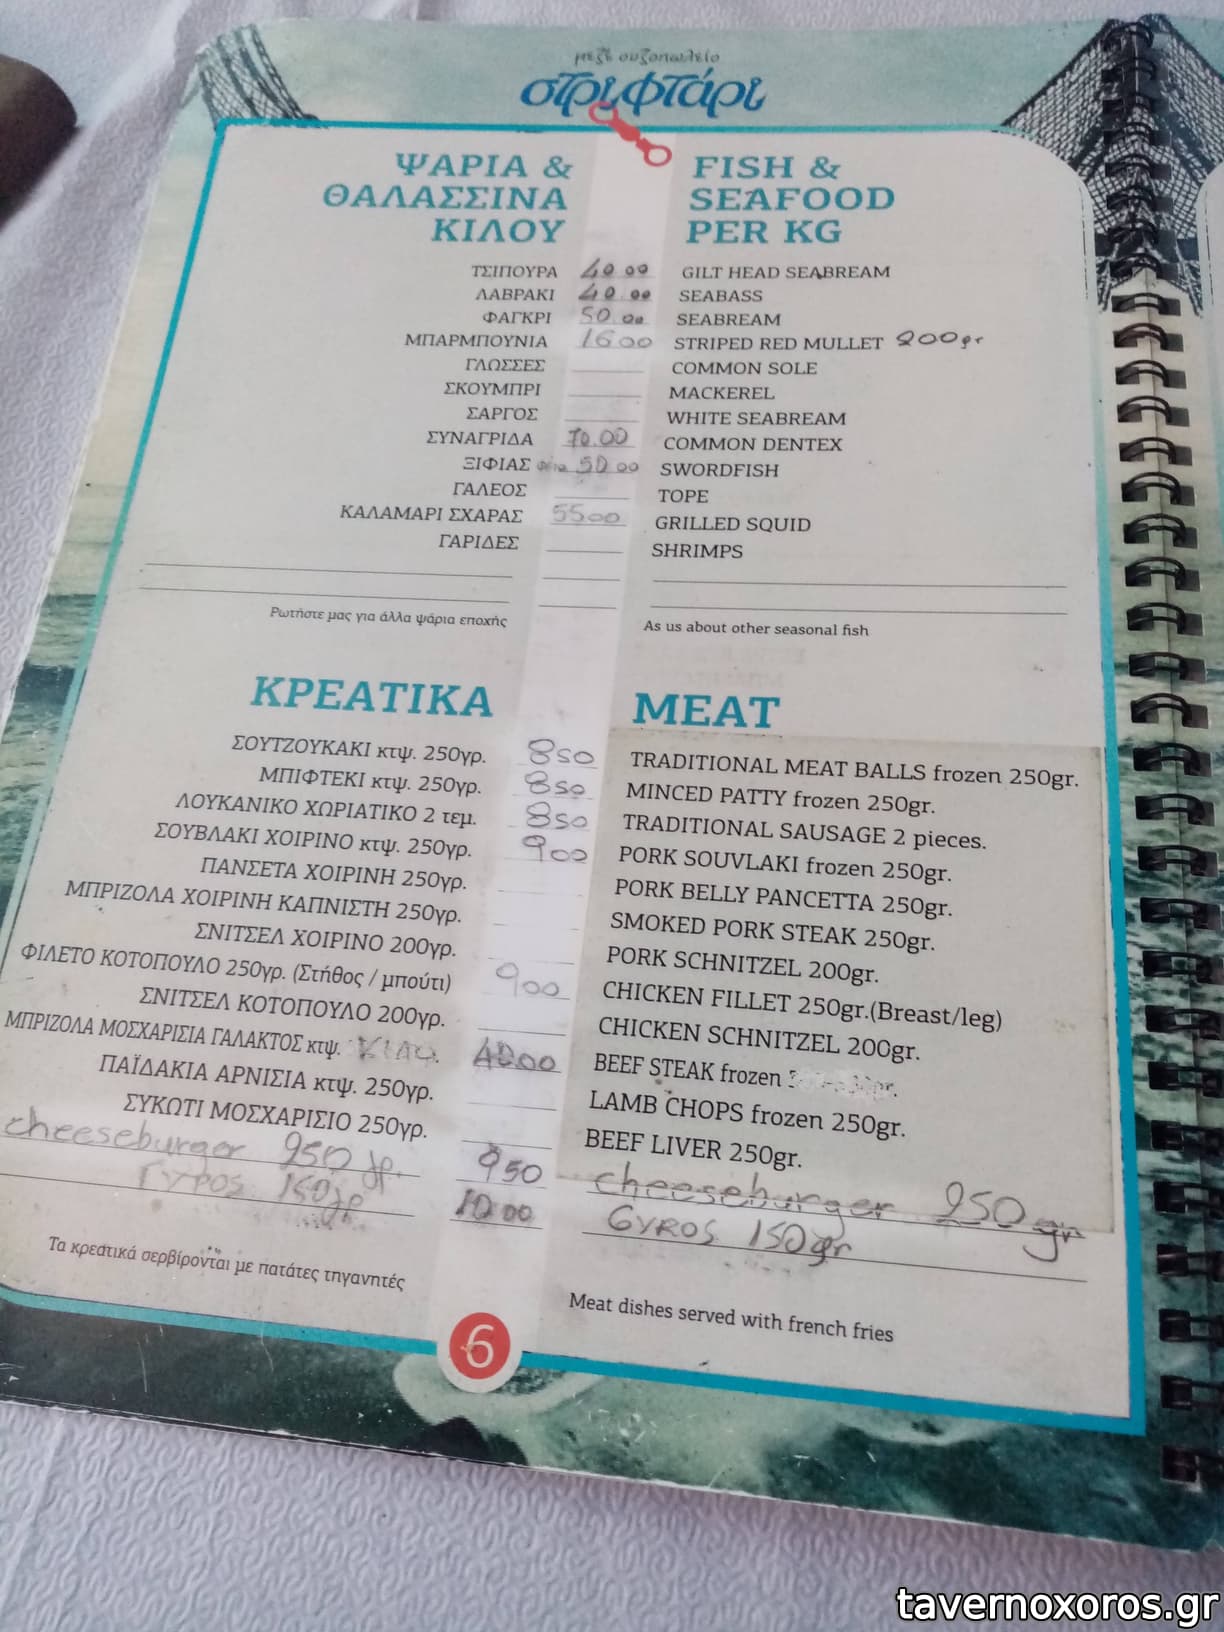 μεζέ ουζοπωλείο
στριφτάρι
ΨΑΡΙΑ & ΘΑΛΑΣΣΙΝΑ ΚΙΛΟΥ
FISH & SEAFOOD PER KG
ΤΣΙΠΟΥΡΑ 40.00 GILT HEAD SEABREAM
ΛΑΒΡΑΚΙ 40.00 SEABASS
ΦΑΓΚΡΙ 50.00 SEABREAM
ΜΠΑΡΜΠΟΥΝΙΑ 1600 STRIPED RED MULLET 200gr
ΓΛΩΣΣΕΣ COMMON SOLE
ΣΚΟΥΜΠΡΙ MACKEREL
ΣΑΡΓΟΣ WHITE SEABREAM
ΣΥΝΑΓΡΙΔΑ 70.00 COMMON DENTEX
ΞΙΦΙΑΣ 50 00 SWORDFISH
ΓΑΛΕΟΣ TOPE
ΚΑΛΑΜΑΡΙ ΣΧΑΡΑΣ 5500 GRILLED SQUID
ΓΑΡΙΔΕΣ SHRIMPS
Ρωτήστε μας για άλλα ψάρια εποχής As us about other seasonal fish
ΚΡΕΑΤΙΚΑ MEAT
ΣΟΥΤΖΟΥΚΑΚΙ κτψ. 250γρ. 850 TRADITIONAL MEAT BALLS frozen 250gr.
ΜΠΙΦΤΕΚΙ κτψ. 250γρ. 850 MINCED PATTY frozen 250gr.
ΛΟΥΚΑΝΙΚΟ ΧΩΡΙΑΤΙΚΟ 2 τεμ. 850 TRADITIONAL SAUSAGE 2 pieces.
ΣΟΥΒΛΑΚΙ ΧΟΙΡΙΝΟ κτψ. 250γρ. 900 PORK SOUVLAKI frozen 250gr.
ΠΑΝΣΕΤΑ ΧΟΙΡΙΝΗ 250γρ. PORK BELLY PANCETTA 250gr.
ΜΠΡΙΖΟΛΑ ΧΟΙΡΙΝΗ ΚΑΠΝΙΣΤΗ 250γρ. SMOKED PORK STEAK 250gr.
ΣΝΙΤΣΕΛ ΧΟΙΡΙΝΟ 200γρ. PORK SCHNITZEL 200gr.
ΦΙΛΕΤΟ ΚΟΤΟΠΟΥΛΟ 250γρ. (Στήθος / μπούτι) 900 CHICKEN FILLET 250gr.(Breast/leg)
ΣΝΙΤΣΕΛ ΚΟΤΟΠΟΥΛΟ 200γρ. CHICKEN SCHNITZEL 200gr.
ΜΠΡΙΖΟΛΑ ΜΟΣΧΑΡΙΣΙΑ ΓΑΛΑΚΤΟΣ κτψ. ΚΙΛΟ. 40.00 BEEF STEAK frozen
ΠΑΪΔΑΚΙΑ ΑΡΝΙΣΙΑ κτψ. 250γρ. LAMB CHOPS frozen 250gr.
ΣΥΚΩΤΙ ΜΟΣΧΑΡΙΣΙΟ 250γρ. BEEF LIVER 250gr.
cheeseburger 250 γρ. 950 cheeseburger 250 gr
ΓΥΡΟΣ 150γρ 10.00 GYROS 150gr
Τα κρεατικά σερβίρονται με πατάτες τηγανητές Meat dishes served with french fries
6
tavernoxoros.gr